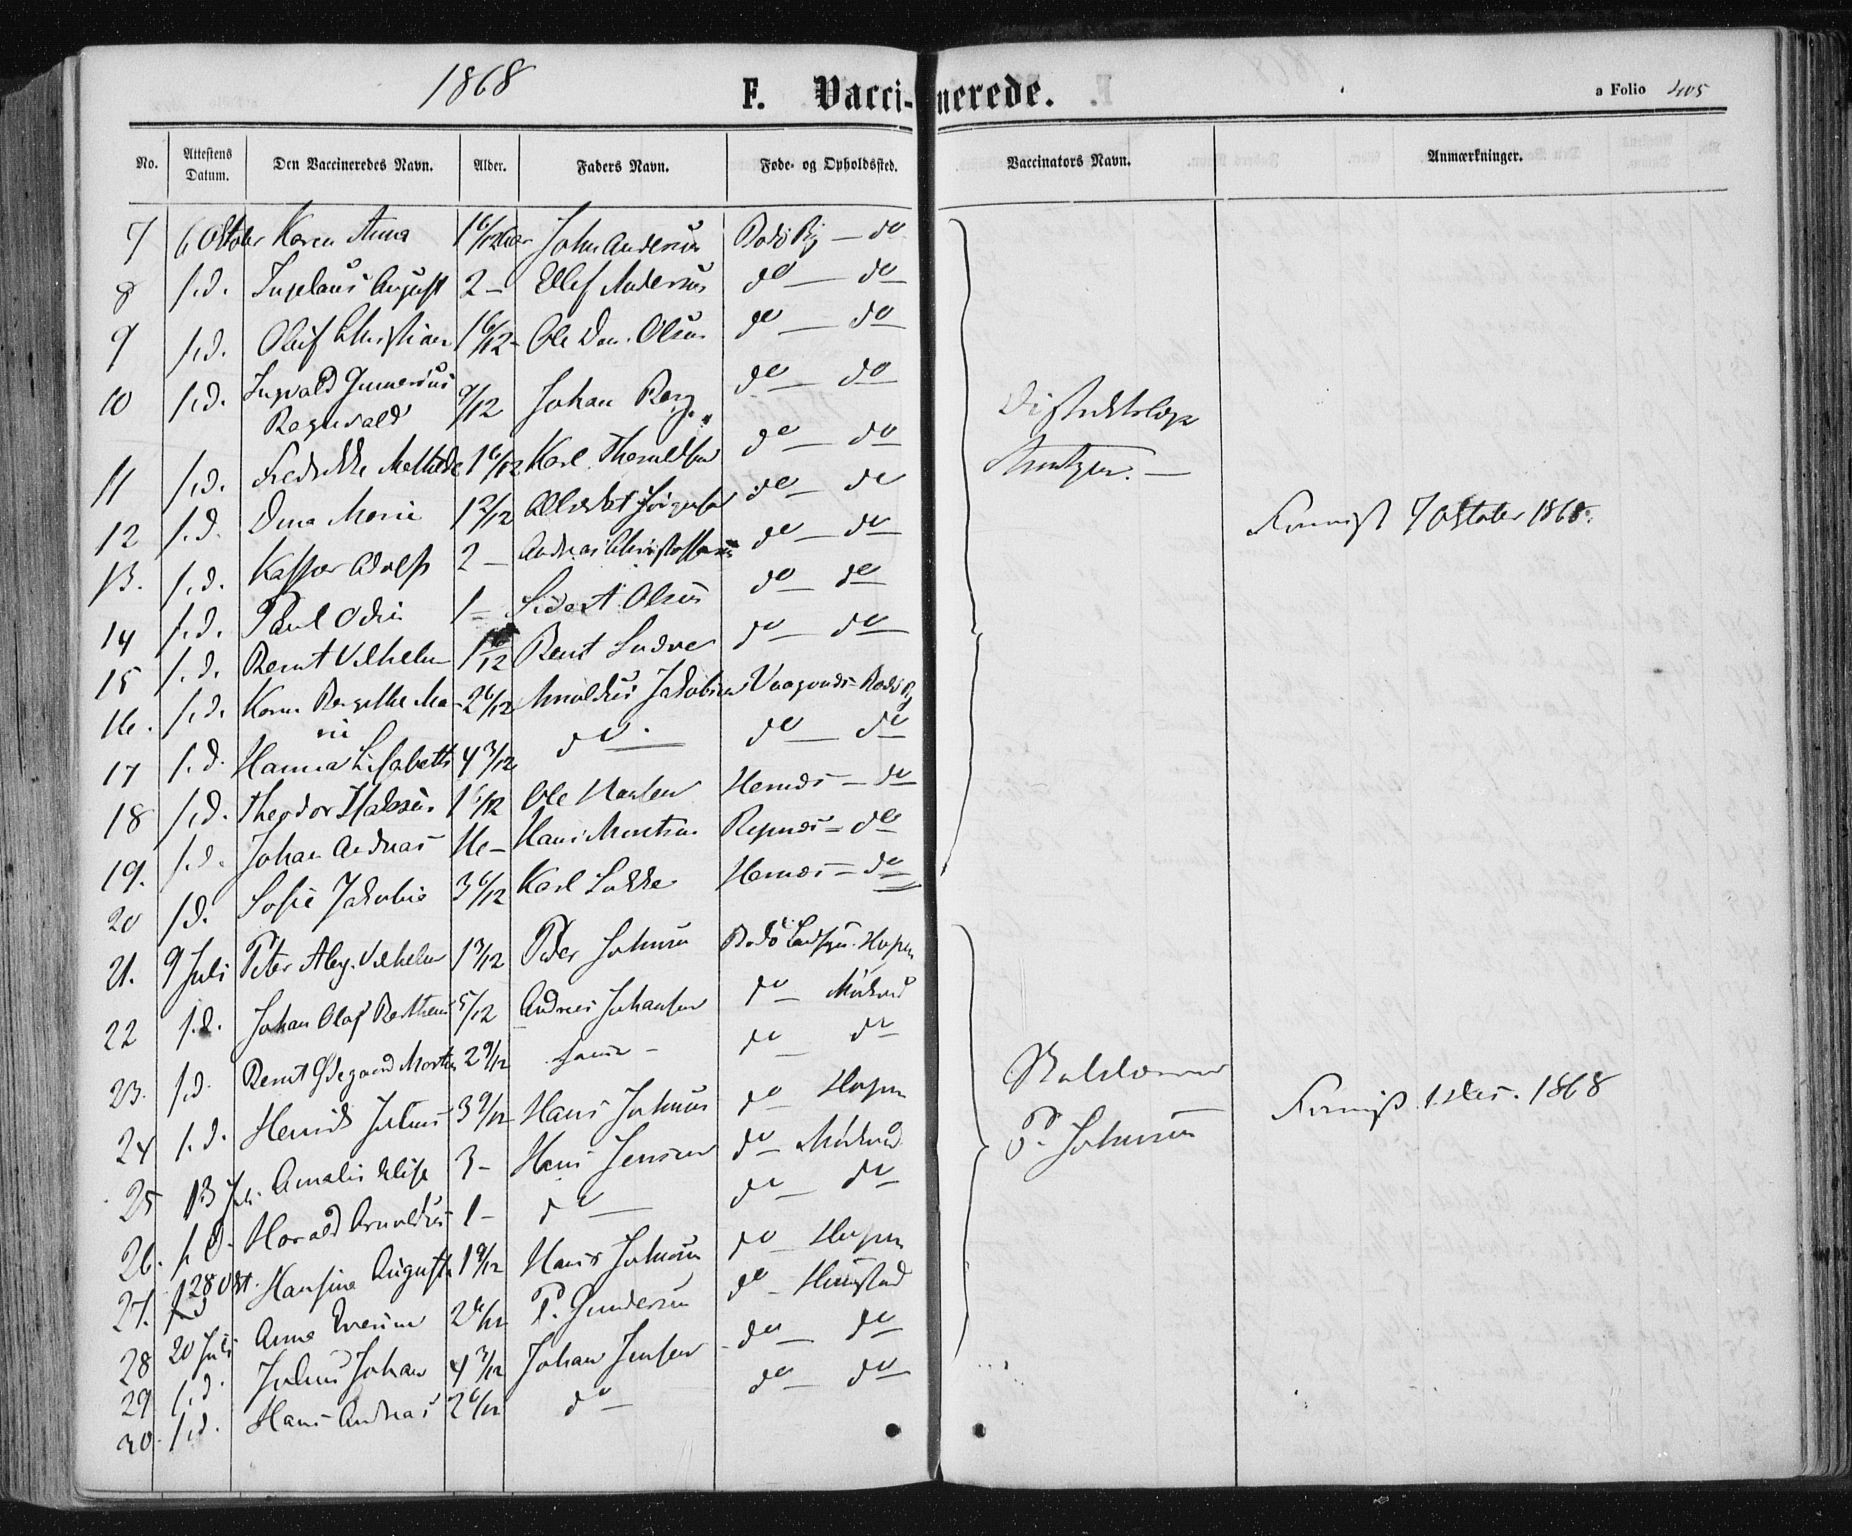 1868
F. Vaccinerede.
a Folio 405
No. Attestens Datum. Den Vaccineredes Navn. Alder. Faders Navn. Føde- og Opholdssted. Vaccinators Navn. Anmærkninger.
7 6 Oktober Karen Anna 1 6/12 John Andersen Bodö By — do
8 s.d. August 2 — Ellef Andersen do — do
9 s.d. Oluf Christian 1 6/12 - Ole Dan. Olsen do — do
10 s.d. Ingvald Gunnerius Ragnvald 9/12 Johan Berg do — do
11 s.d. Fredrikke Mathilde 1 6/12 Karl do — do
12 s.d. Marie do — do
13. s.d. Kasper Adolf 2 — Andreas Christoffersen do — do
14 s.d. Paul Odin 1 — Sivert Olsen do — do
15 s.d. Bernt Vilhelm Bernt do — do
16. s.d. Karen Bergitthe Marie 2 6/12 Arnoldus Jakobsen Bodö By
17 s.d. Hanna Lisabeth 4 3/12 do. do — do
18 s.d. Theodor 1 6/12 Ole Hernæs — do
19. s.d. Johan Andreas Hans do
20 s.d. Sofie Jakobine 3 6/12 Karl Hernæs — do
21. 9 Juli Peter Alex. Vilhelm 1 3/12 Peder Johnsen Bodö Hopen
22 s.d. Johan Olaf 5/12 Andreas Johansen do — Mörkved
23. s.d. Bernt Ødegaard Morten 2 9/12 samme — do — do
24 s.d. Henrik Julius 3 9/12 Hans Johnsen do — Hopen
25 13 Jul. Amalie Elise 3 - Hans Jensen do — Mörkved
26. s.d. Harald Arnoldus 1 - do do — do
27. 28 Okt. Hansine Augusta 1 9/12 Hans Johnsen do — Hopen
28 20 Juli Anna P. Gundersen do — Hunstad
29 s.d. Julius Johan 4 3/12 Johan Jensen do — do
30. s.d. Hans Andreas 2 6/12 do do — do
Distriktslæge
7 Oktober 1868.
P. Johnsen
1 Des. 1868